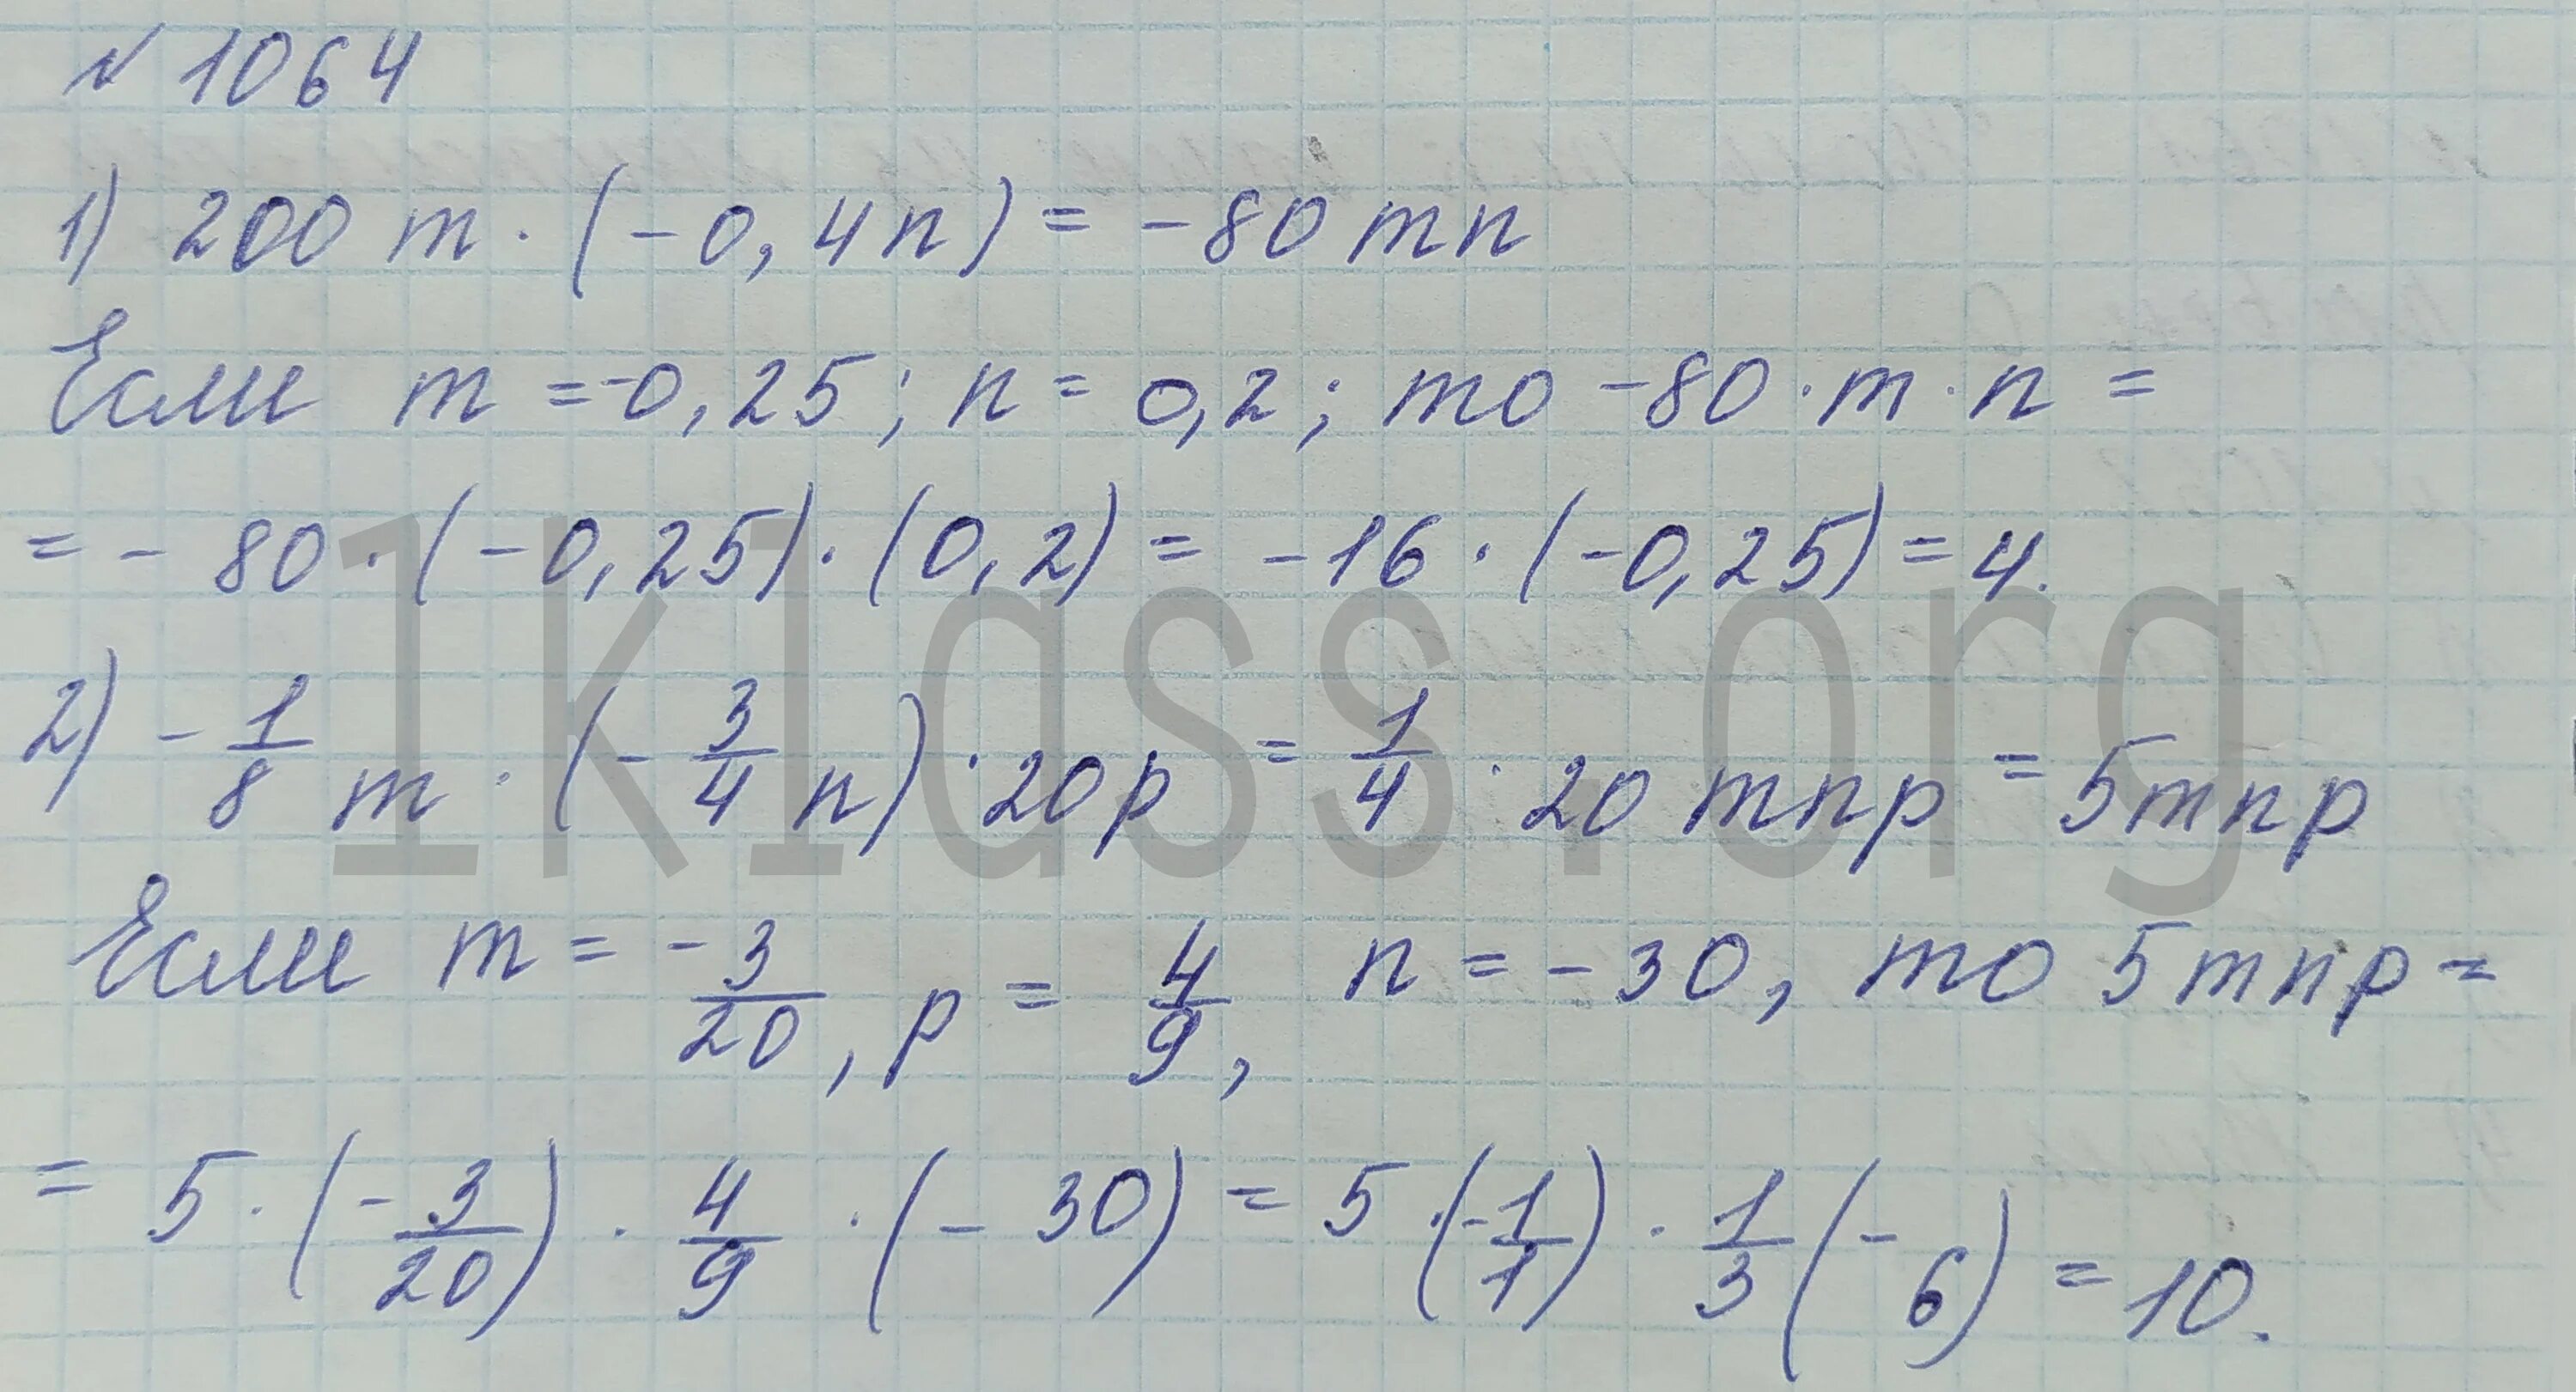 № 1064
1) 200 m · (-0,4n) = -80 mn
Если m = -0,25; n = 0,2; то -80 · m · n =
= - 80 · (-0,25) · (0,2) = -16 · (-0,25) = 4.
2) - 1/8 m · (- 3/4 n) · 20p = 1/4 · 20 mnp = 5mnp
Если m = - 3/20, p = 4/9, n = -30, то 5mnp =
= 5 · (- 3/20) · 4/9 · (- 30) = 5 · (- 1/1) · 1/3 (- 6) = 10.
1klass.org